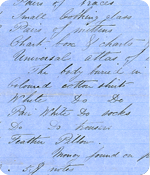 Pairs of Braces
Small looking glass
Pairs of mittens
Chart box & charts
Universal atlas of
The body buried in
Coloured cotton shirt
White Do Do
Pair White Do socks
Do Do
Feather Pillow
Money found on p
notes